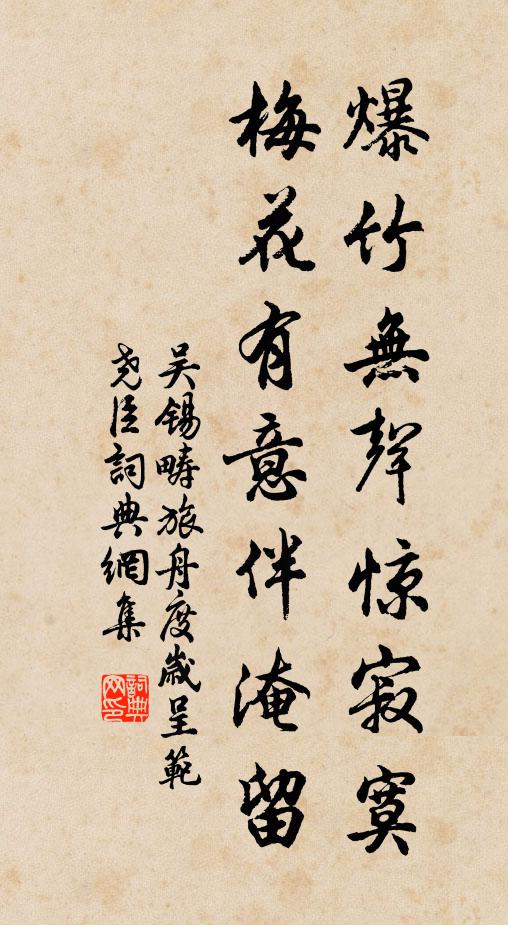 爆竹無聲惊寂寞
梅花有意伴淹留
吴锡畴旅舟度歲呈範
尧臣詞典網集
詞典
网印